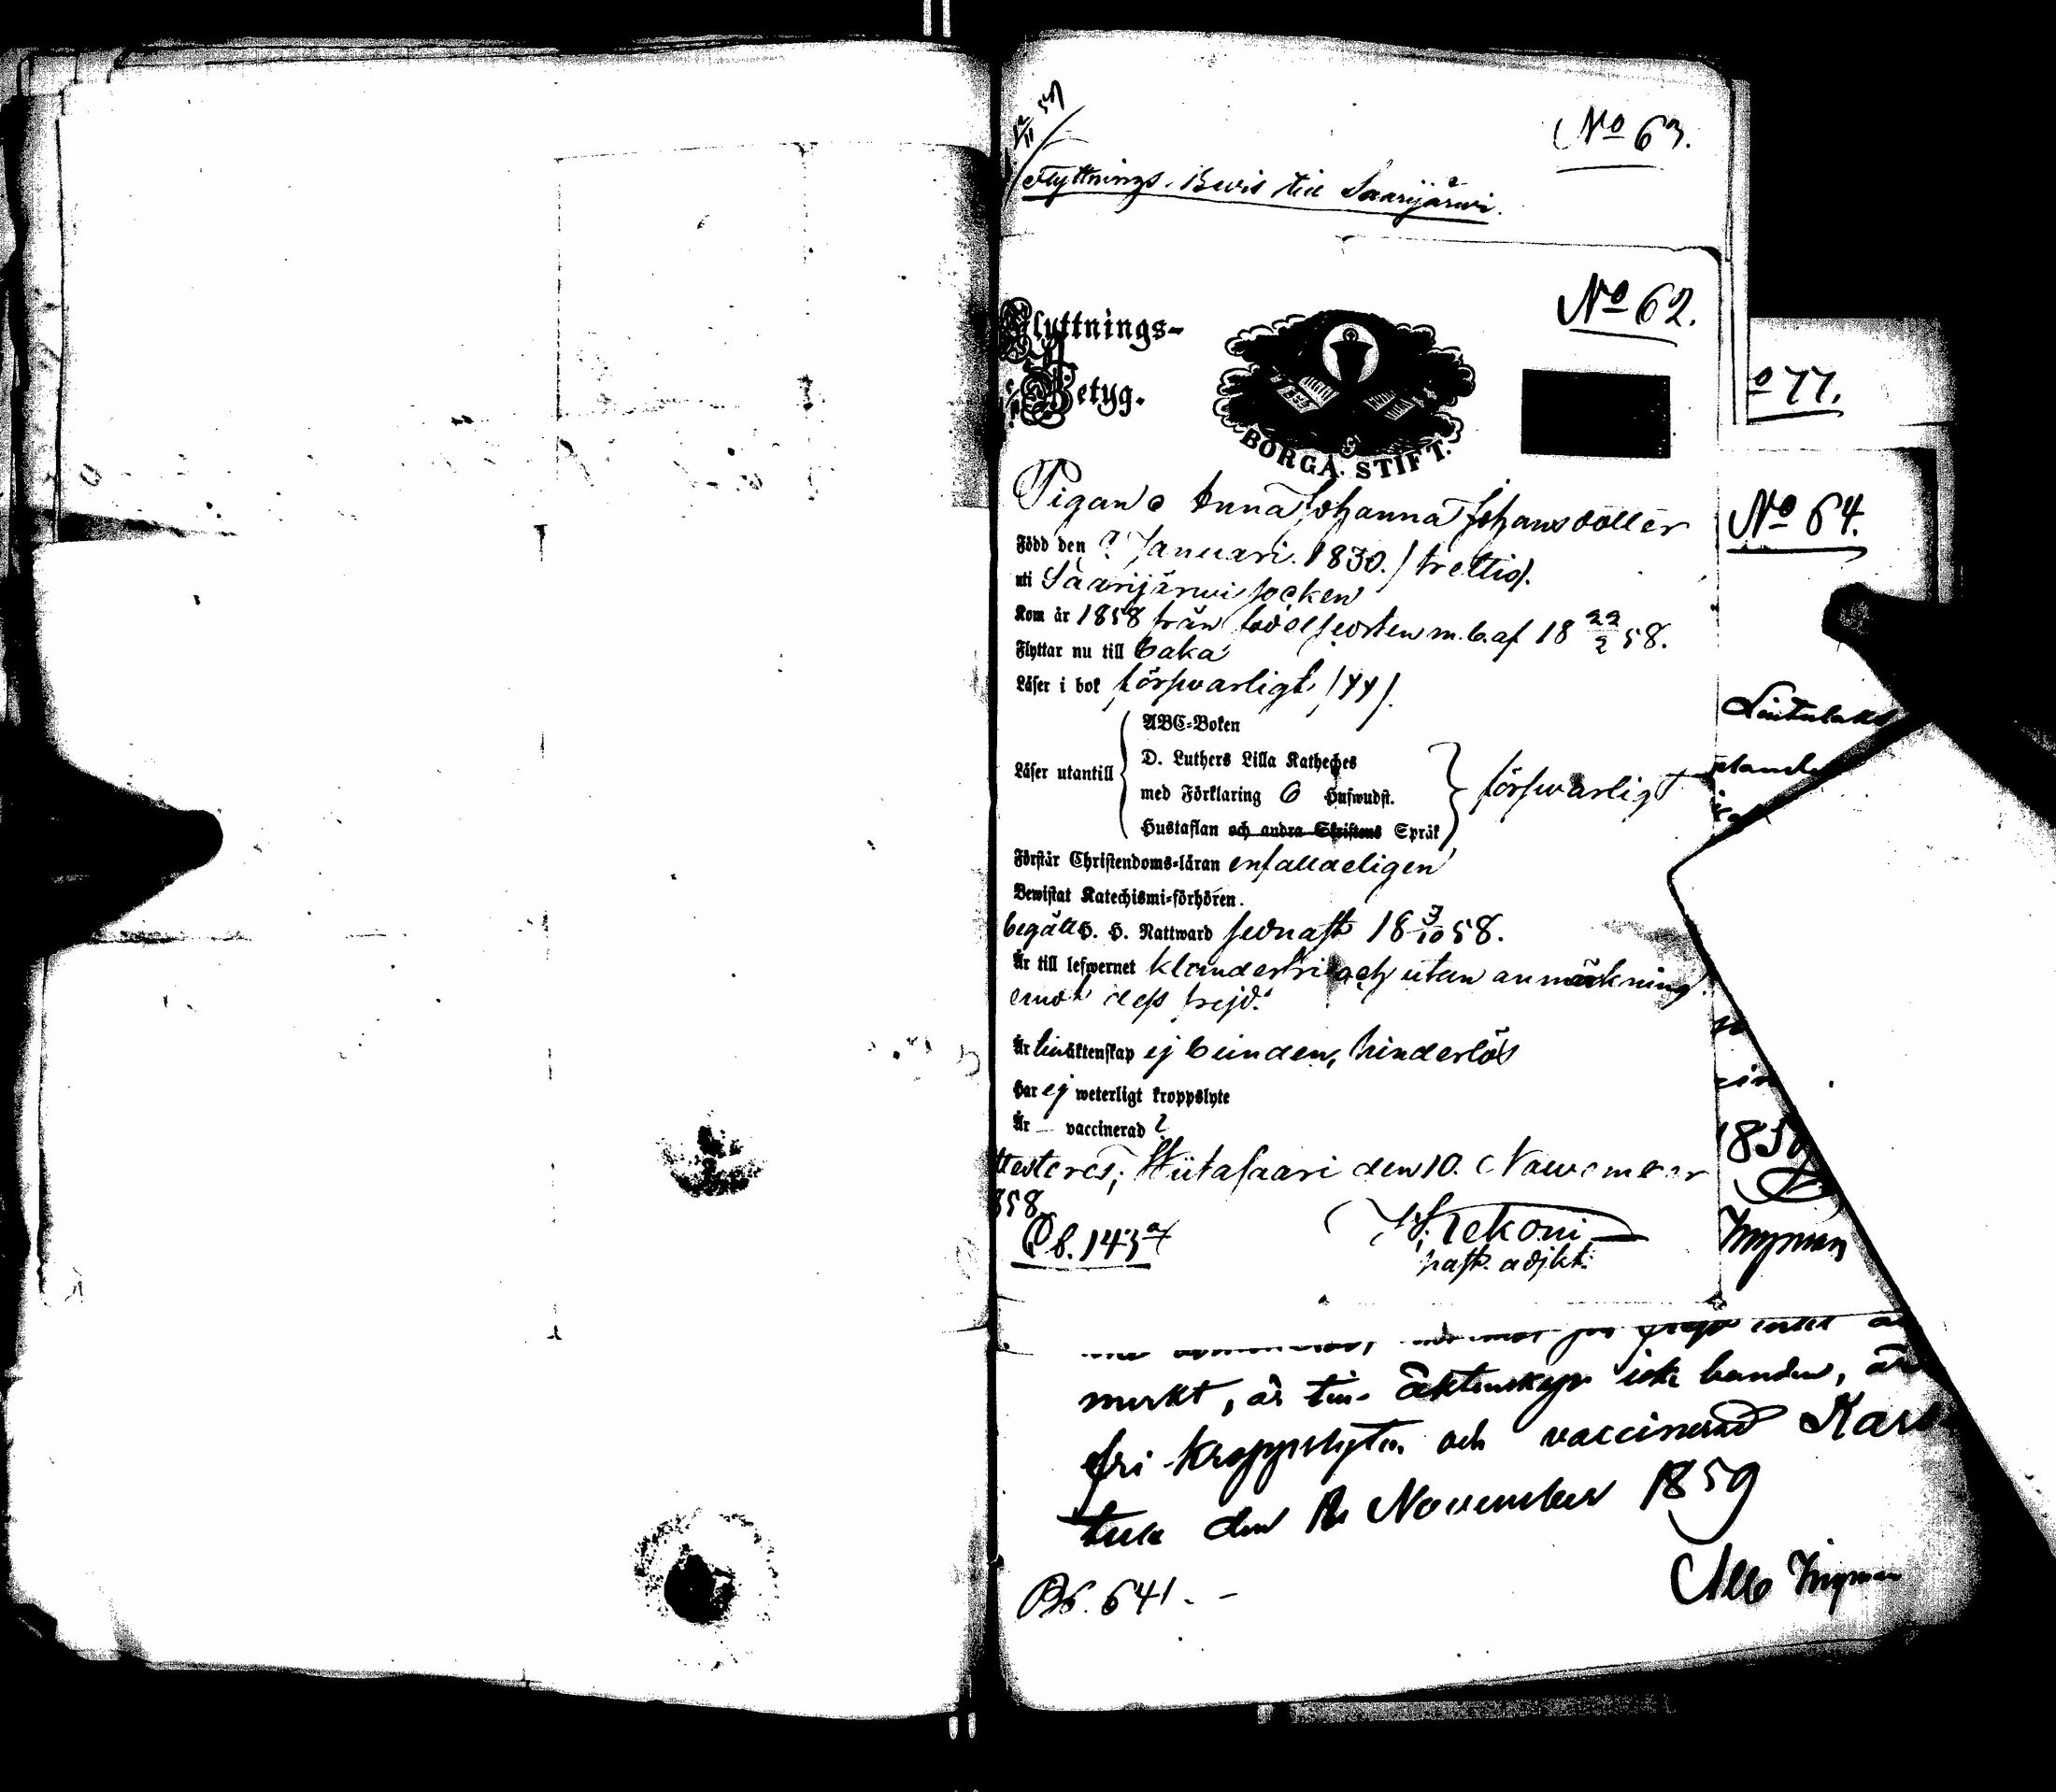 12/11 59
No 63.
Flyttnings-Bevis till Saarijärwi.
No 62.
Flyttnings-
Betyg.
BORGÅ STIFT.
o 77.
No 64.
Pigan Anna Johanna Johansdotter
Född den ? Januari 1830. / trettio /.
uti Saarijärwi socken
Kom år 1858 från födelseorten m. b. af 18 22/2 58.
Flyttar nu till baka
Läser i bok förswarligt / YY /.
ABC-Boken
Läser utantill D. Luthers Lilla Katheches
med Förklaring 6 Hufwudst. förswarligt
Hustaflan och andra Skriftens Språk
Förstår Christendoms-läran enfalldeligen
Bewistat Katechismi-förhören.
begått H. H. Nattward sednast 18 3/10 58.
Är till lefwernet klanderfri och utan anmärkning
emot dess frejd.
Är till äktenskap ej bunden, hinderlös
Har ej weterligt kroppslyte
Är — vaccinerad ?
ttesteres; Wiitasaari den 10. Nowember
858.
Pb. 143
Kekoni
past. adjkt.
Lintulaks
1859
Ingman
märkt, är till äktenskap icke bunden, är
fri kroppslyten och vaccinerad Kars
tula den November 1859
Alb Ingman
Pb. 641. -